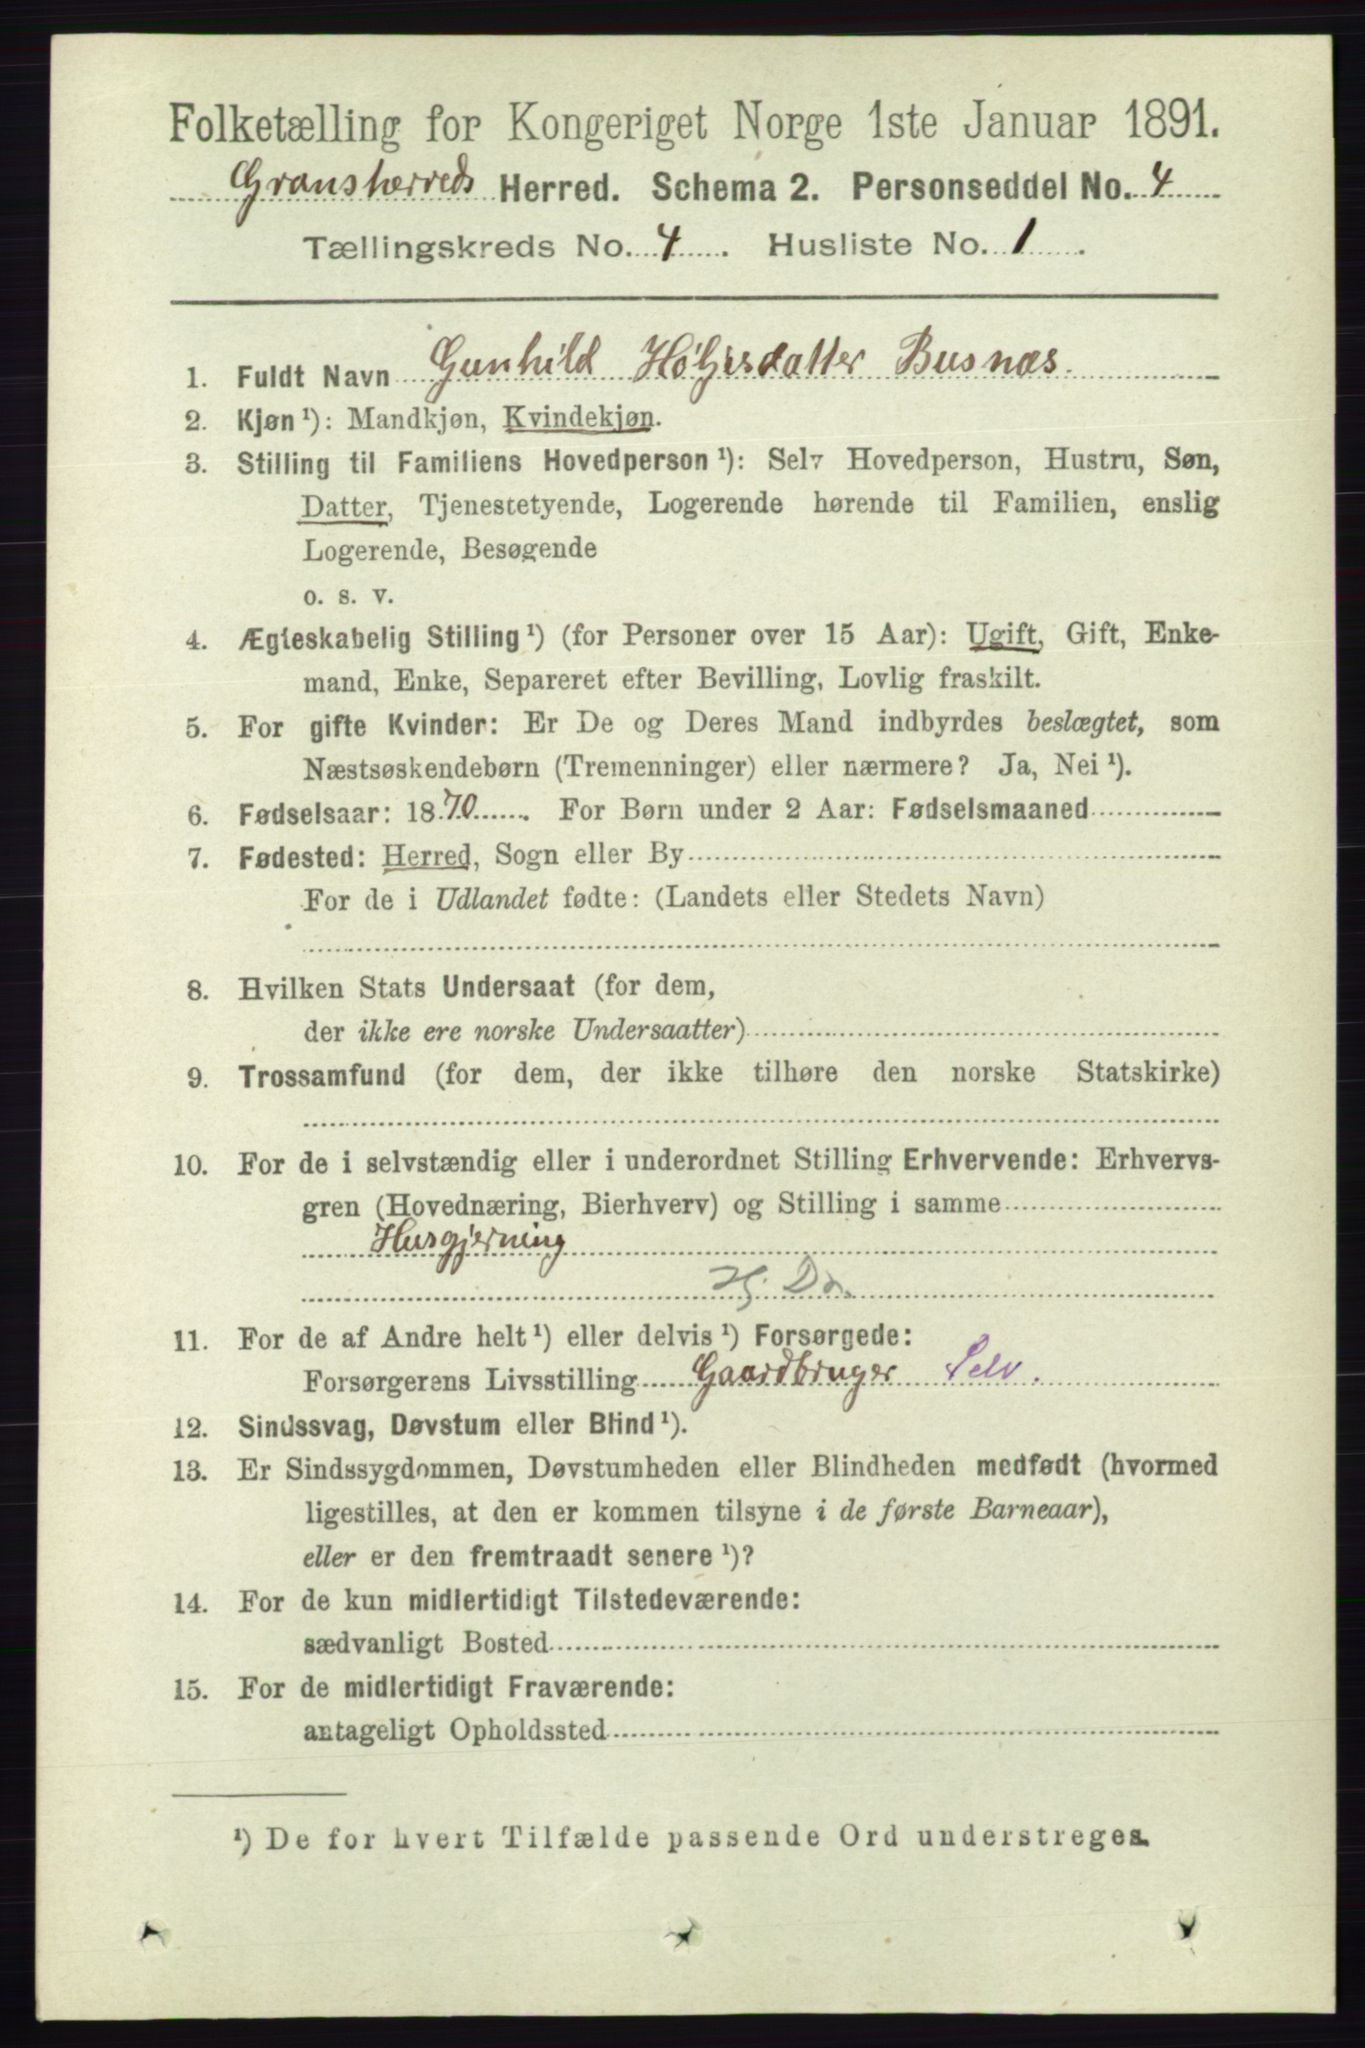 Folketælling for Kongeriget Norge 1ste Januar 1891.
Gransherreds Herred. Schema 2. Personseddel No. 4
Tællingskreds No. 4. Husliste No. 1.
1. Fuldt Navn Gunhild Høljesdatter Busnæs.
2. Kjøn ¹): Mandkjøn, Kvindekjøn.
3. Stilling til Familiens Hovedperson ¹): Selv Hovedperson, Hustru, Søn,
Datter, Tjenestetyende, Logerende hørende til Familien, enslig
Logerende, Besøgende
o. s. v.
4. Ægteskabelig Stilling ¹) (for Personer over 15 Aar): Ugift, Gift, Enke-
mand, Enke, Separeret efter Bevilling, Lovlig fraskilt.
5. For gifte Kvinder: Er De og Deres Mand indbyrdes beslægtet, som
Næstsøskendebørn (Tremenninger) eller nærmere? Ja, Nei ¹).
6. Fødselsaar: 1870. For Børn under 2 Aar: Fødselsmaaned
7. Fødested: Herred, Sogn eller By
For de i Udlandet fødte: (Landets eller Stedets Navn)
8. Hvilken Stats Undersaat (for dem,
der ikke ere norske Undersaatter)
9. Trossamfund (for dem, der ikke tilhøre den norske Statskirke)
10. For de i selvstændig eller i underordnet Stilling Erhvervende: Erhvervs-
gren (Hovednæring, Bierhverv) og Stilling i samme
Husgjerning
Hj. Da.
11. For de af Andre helt ¹) eller delvis ¹) Forsørgede:
Forsørgerens Livsstilling Gaardbruger Selv.
12. Sindssvag, Døvstum eller Blind ¹).
13. Er Sindssygdommen, Døvstumheden eller Blindheden medfødt (hvormed
ligestilles, at den er kommen tilsyne i de første Barneaar),
eller er den fremtraadt senere ¹)?
14. For de kun midlertidigt Tilstedeværende:
sædvanligt Bosted
15. For de midlertidigt Fraværende:
antageligt Opholdssted
¹) De for hvert Tilfælde passende Ord understreges.